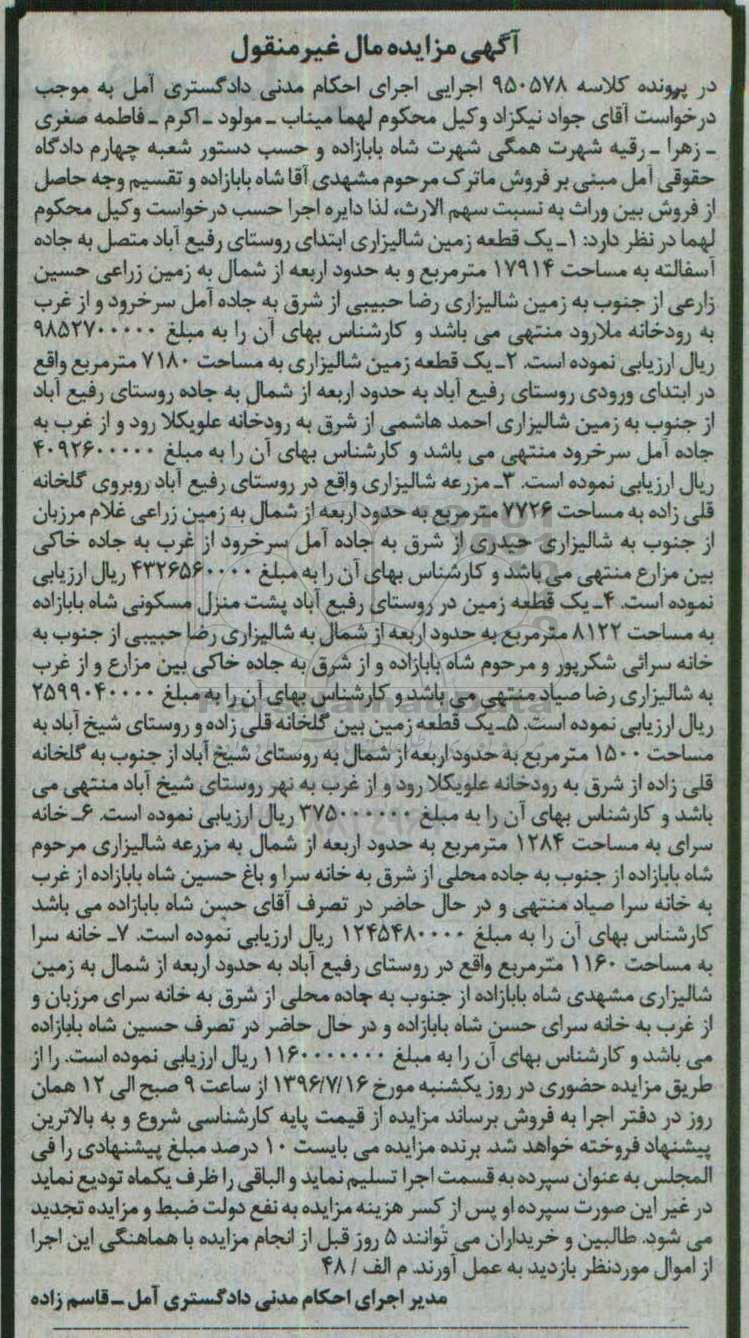 آگهی مزایده مال غیرمنقول
در پرونده کلاسه ۹۵۰۵۷۸ اجرایی اجرای احکام مدنی دادگستری آمل به موجب
درخواست آقای جواد نیکزاد وکیل محکوم لهما میناب ـ مولود ـ اکرم ـ فاطمه صغری
ـ زهرا ـ رقیه شهرت همگی شهرت شاه بابازاده و حسب دستور شعبه چهارم دادگاه
حقوقی آمل مبنی بر فروش ماترک مرحوم مشهدی آقا شاه بابازاده و تقسیم وجه حاصل
از فروش بین وراث به نسبت سهم الارث، لذا دایره اجرا حسب درخواست وکیل محکوم
لهما در نظر دارد: ۱ـ یک قطعه زمین شالیزاری ابتدای روستای رفیع آباد متصل به جاده
آسفالته به مساحت ۱۷۹۱۴ مترمربع و به حدود اربعه از شمال به زمین زراعی حسین
زارعی از جنوب به زمین شالیزاری رضا حبیبی از شرق به جاده آمل سرخرود و از غرب
به رودخانه ملارود منتهی می باشد و کارشناس بهای آن را به مبلغ ۹۸۵۲۷۰۰۰۰۰
ریال ارزیابی نموده است. ۲ـ یک قطعه زمین شالیزاری به مساحت ۷۱۸۰ مترمربع واقع
در ابتدای ورودی روستای رفیع آباد به حدود اربعه از شمال به جاده روستای رفیع آباد
از جنوب به زمین شالیزاری احمد هاشمی از شرق به رودخانه علویکلا رود و از غرب به
جاده آمل سرخرود منتهی می باشد و کارشناس بهای آن را به مبلغ ۴۰۹۲۶۰۰۰۰۰
ریال ارزیابی نموده است. ۳ـ مزرعه شالیزاری واقع در روستای رفیع آباد روبروی گلخانه
قلی زاده به مساحت ۷۷۲۶ مترمربع به حدود اربعه از شمال به زمین زراعی غلام مرزبان
از جنوب به شالیزاری حیدری از شرق به جاده آمل سرخرود از غرب به جاده خاکی
بین مزارع منتهی می باشد و کارشناس بهای آن را به مبلغ ۴۳۲۶۵۶۰۰۰۰ ریال ارزیابی
نموده است. ۴ـ یک قطعه زمین در روستای رفیع آباد پشت منزل مسکونی شاه بابازاده
به مساحت ۸۱۲۲ مترمربع به حدود اربعه از شمال به شالیزاری رضا حبیبی از جنوب به
خانه سرائی شکرپور و مرحوم شاه بابازاده و از شرق به جاده خاکی بین مزارع و از غرب
به شالیزاری رضا صیاد منتهی می باشد و کارشناس بهای آن را به مبلغ ۲۵۹۹۰۴۰۰۰۰
ریال ارزیابی نموده است. ۵ـ یک قطعه زمین بین گلخانه قلی زاده و روستای شیخ آباد به
مساحت ۱۵۰۰ مترمربع به حدود اربعه از شمال به روستای شیخ آباد از جنوب به گلخانه
قلی زاده از شرق به رودخانه علویکلا رود و از غرب به نهر روستای شیخ آباد منتهی می
باشد و کارشناس بهای آن را به مبلغ ۳۷۵۰۰۰۰۰۰ ریال ارزیابی نموده است. ۶ـ خانه
سرای به مساحت ۱۲۸۴ مترمربع به حدود اربعه از شمال به مزرعه شالیزاری مرحوم
شاه بابازاده از جنوب به جاده محلی از شرق به خانه سرا و باغ حسین شاه بابازاده از غرب
به خانه سرا صیاد منتهی و در حال حاضر در تصرف آقای حسن شاه بابازاده می باشد
کارشناس بهای آن را به مبلغ ۱۲۴۵۴۸۰۰۰۰ ریال ارزیابی نموده است. ۷ـ خانه سرا
به مساحت ۱۱۶۰ مترمربع واقع در روستای رفیع آباد به حدود اربعه از شمال به زمین
شالیزاری مشهدی شاه بابازاده از جنوب به جاده محلی از شرق به خانه سرای مرزبان و
از غرب به خانه سرای حسن شاه بابازاده و در حال حاضر در تصرف حسین شاه بابازاده
می باشد و کارشناس بهای آن را به مبلغ ۱۱۶۰۰۰۰۰۰۰ ریال ارزیابی نموده است. را از
طریق مزایده حضوری در روز یکشنبه مورخ ۱۳۹۶/۷/۱۶ از ساعت ۹ صبح الی ۱۲ همان
روز در دفتر اجرا به فروش برساند مزایده از قیمت پایه کارشناسی شروع و به بالاترین
پیشنهاد فروخته خواهد شد. برنده مزایده می بایست ۱۰ درصد مبلغ پیشنهادی را فی
المجلس به عنوان سپرده به قسمت اجرا تسلیم نماید و الباقی را ظرف یکماه تودیع نماید
در غیر این صورت سپرده او پس از کسر هزینه مزایده به نفع دولت ضبط و مزایده تجدید
می شود. طالبین و خریداران می توانند ۵ روز قبل از انجام مزایده با هماهنگی این اجرا
از اموال موردنظر بازدید به عمل آورند. م الف / ۴۸
مدیر اجرای احکام مدنی دادگستری آمل ـ قاسم زاده